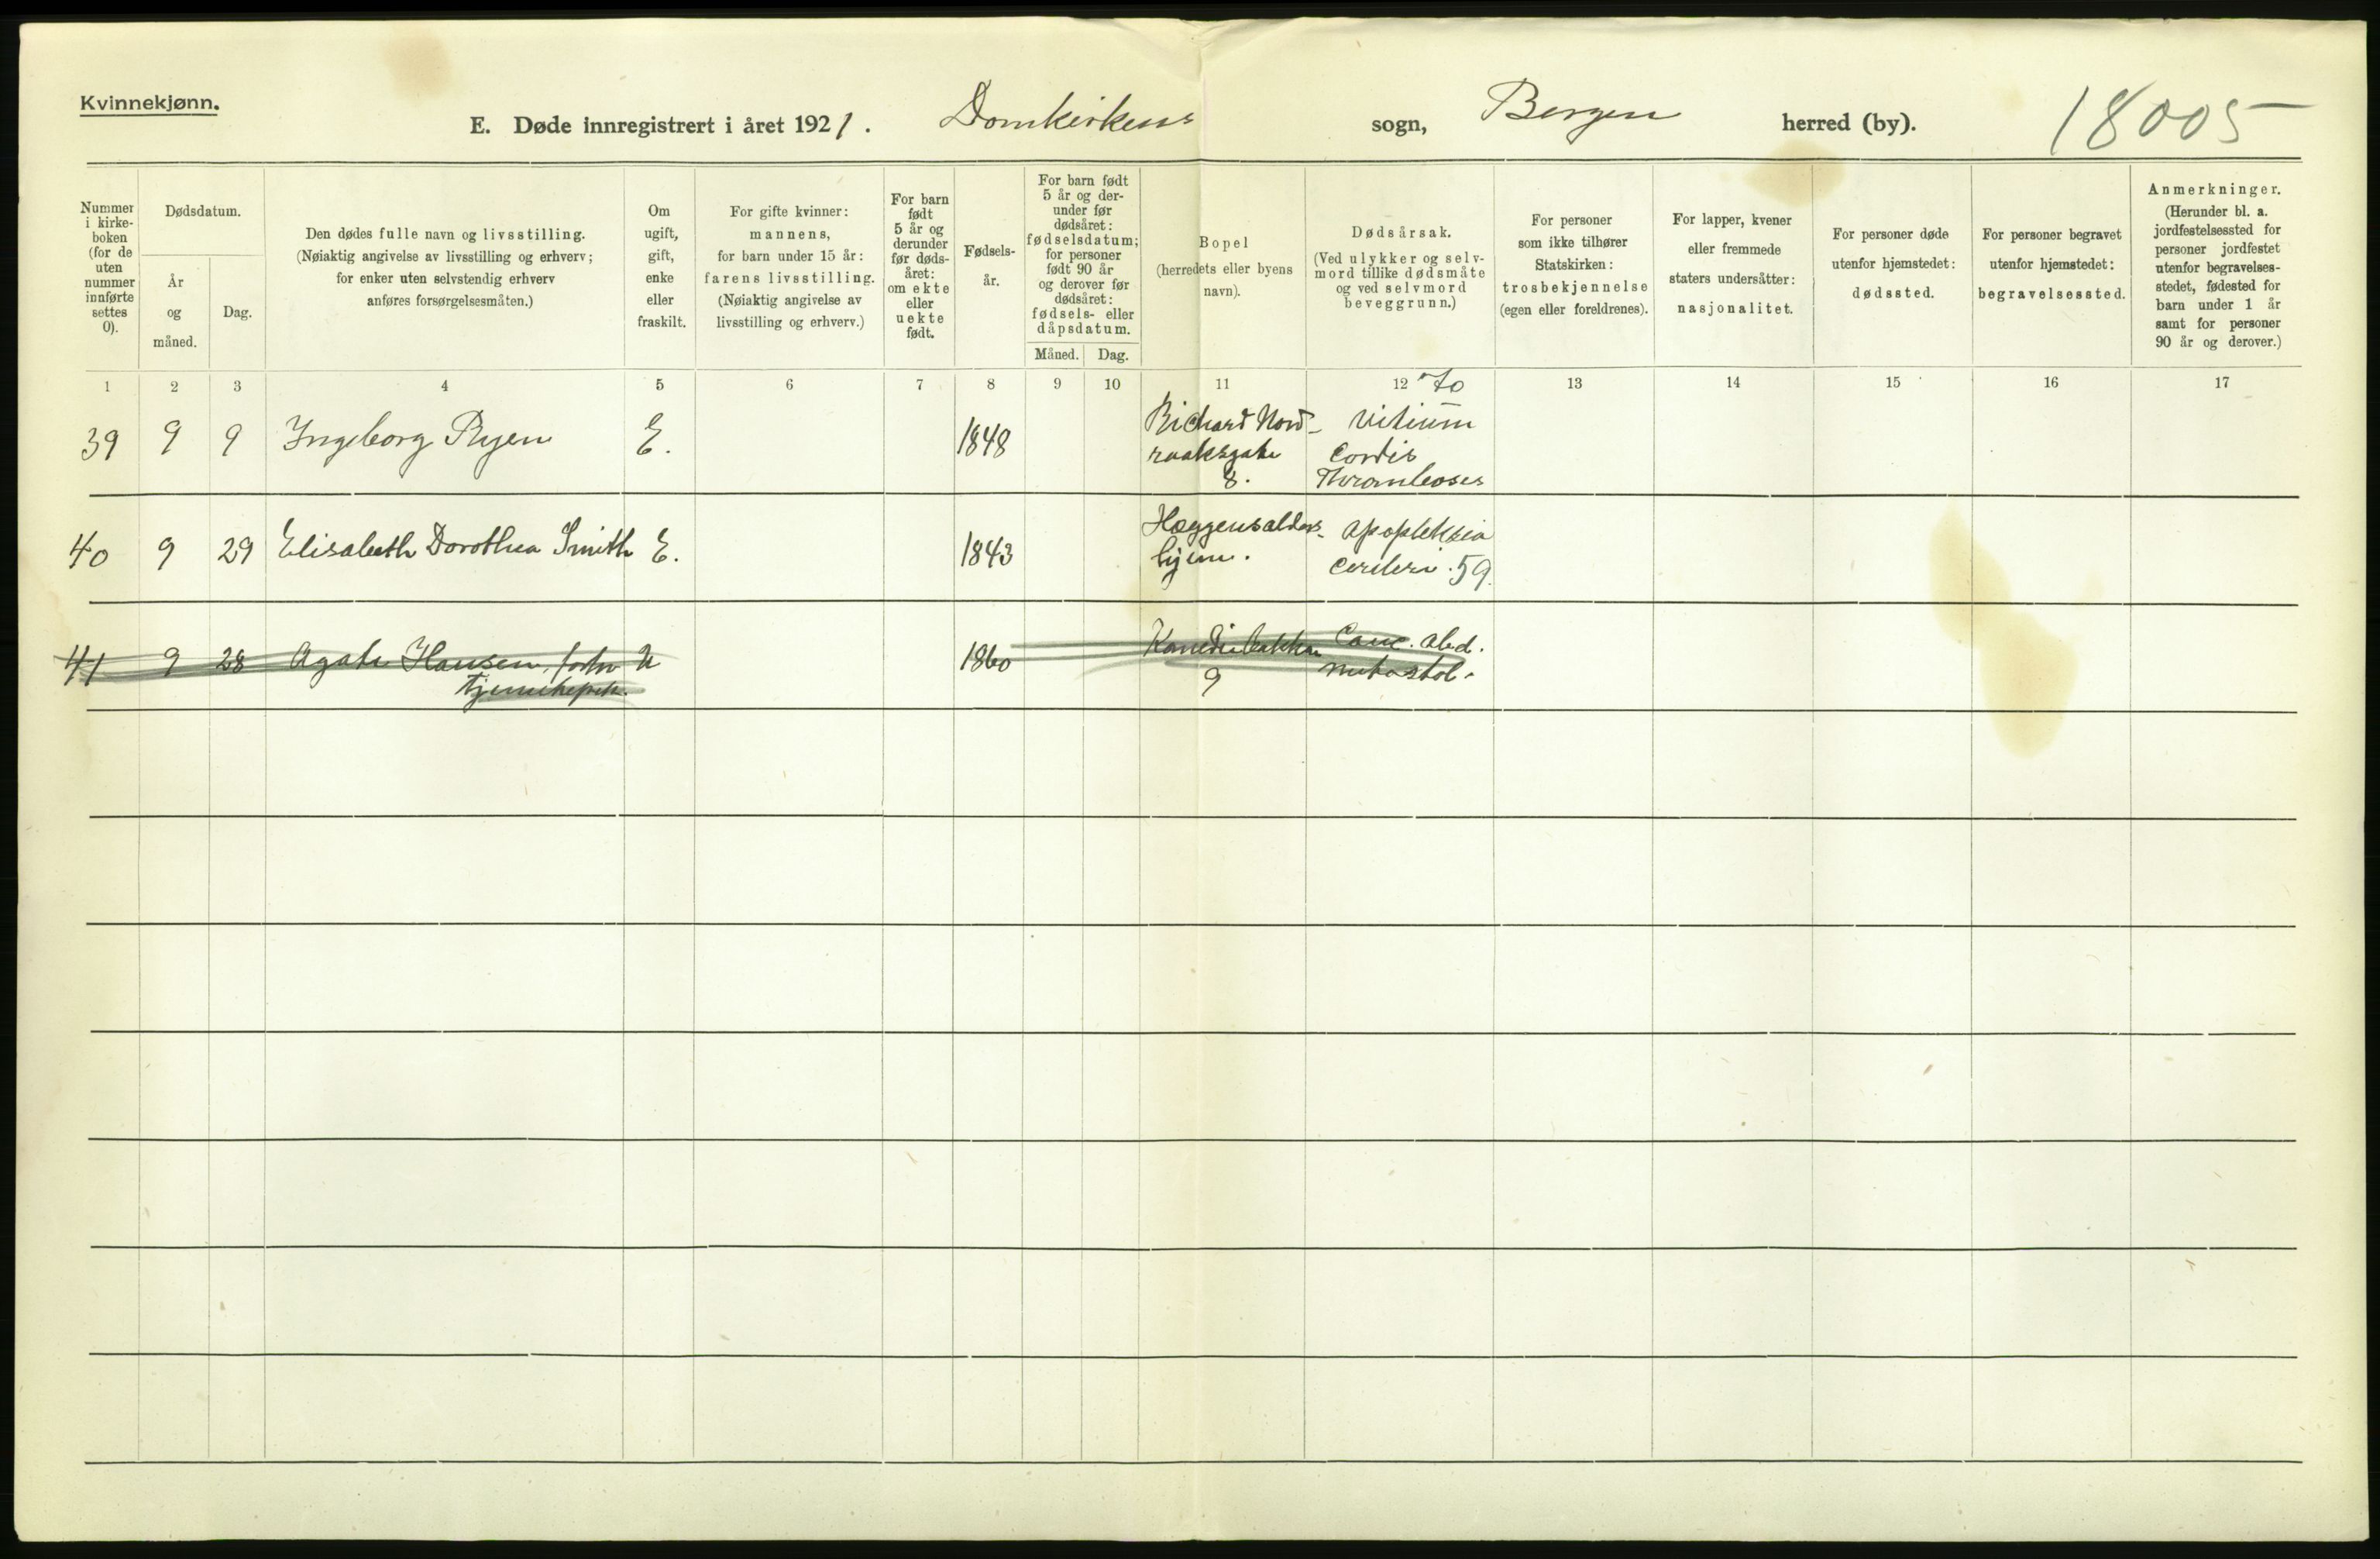 Kvinnekjønn.
E. Døde innregistrert i året 1921. Domkirkens sogn, Bergen herred (by). 18005
Nummer
i kirke-
boken
(for de
uten
nummer
innførte
settes
0).
Dødsdatum.
År
og
måned.
Dag.
Den dødes fulle navn og livsstilling.
(Nøiaktig angivelse av livsstilling og erhverv;
for enker uten selvstendig erhverv
anføres forsørgelsesmåten.)
Om
ugift,
gift,
enke
eller
fraskilt.
For gifte kvinner:
mannens,
for barn under 15 år:
farens livsstilling.
(Nøiaktig angivelse av
livsstilling og erhverv.)
For barn
født
5 år og
derunder
før døds-
året:
om ekte
eller
uekte
født.
Fødsels-
år.
For barn født
5 år og der-
under før
dødsåret:
fødselsdatum;
for personer
født 90 år
og derover før
dødsåret:
fødsels- eller
dåpsdatum.
Måned. Dag.
Bopel
(herredets eller byens
navn).
Dødsårsak.
(Ved ulykker og selv-
mord tillike dødsmåte
og ved selvmord
beveggrunn.)
For personer
som ikke tilhører
Statskirken:
trosbekjennelse
(egen eller foreldrenes).
For lapper, kvener
eller fremmede
staters undersåtter:
nasjonalitet.
For personer døde
utenfor hjemstedet:
dødssted.
For personer begravet
utenfor hjemstedet:
begravelsessted.
Anmerkninger.
(Herunder bl. a.
jordfestelsessted for
personer jordfestet
utenfor begravelses-
stedet, fødested for
barn under 1 år
samt for personer
90 år og derover.)
1 2 3 4 5 6 7 8 9 10 11 12 70 13 14 15 16 17
39 9 9 Ingeborg Ryen E. 1848
Richard Nord-
raaksgate
8.
Vitium
Cordis
Thromboses
40 9 29 Elisabeth Dorothea Smith E. 1843
Hæggensalders-
hjem.
Apopleksia
cerebri. 59.
41 9 28 Agate Hansen, forhv U 1860
9
Canc. abd.